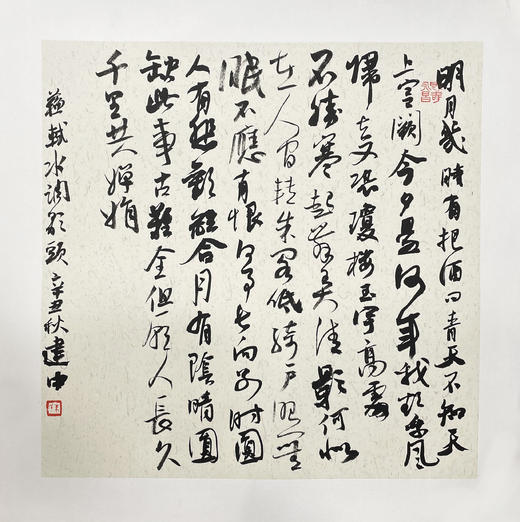 明月幾時有把酒问青天不知天
上宫阙今夕是何年我欲乘风
帰去又恐瓊樓玉宇高處
不勝寒起舞弄清影何似
在人间转朱阁低绮户照無
眠不應有恨何事长向别时圓
人有悲歡離合月有陰晴圓
缺此事古難全但願人長久
千里共嬋娟
蘇軾水调歌頭 辛丑秋建中